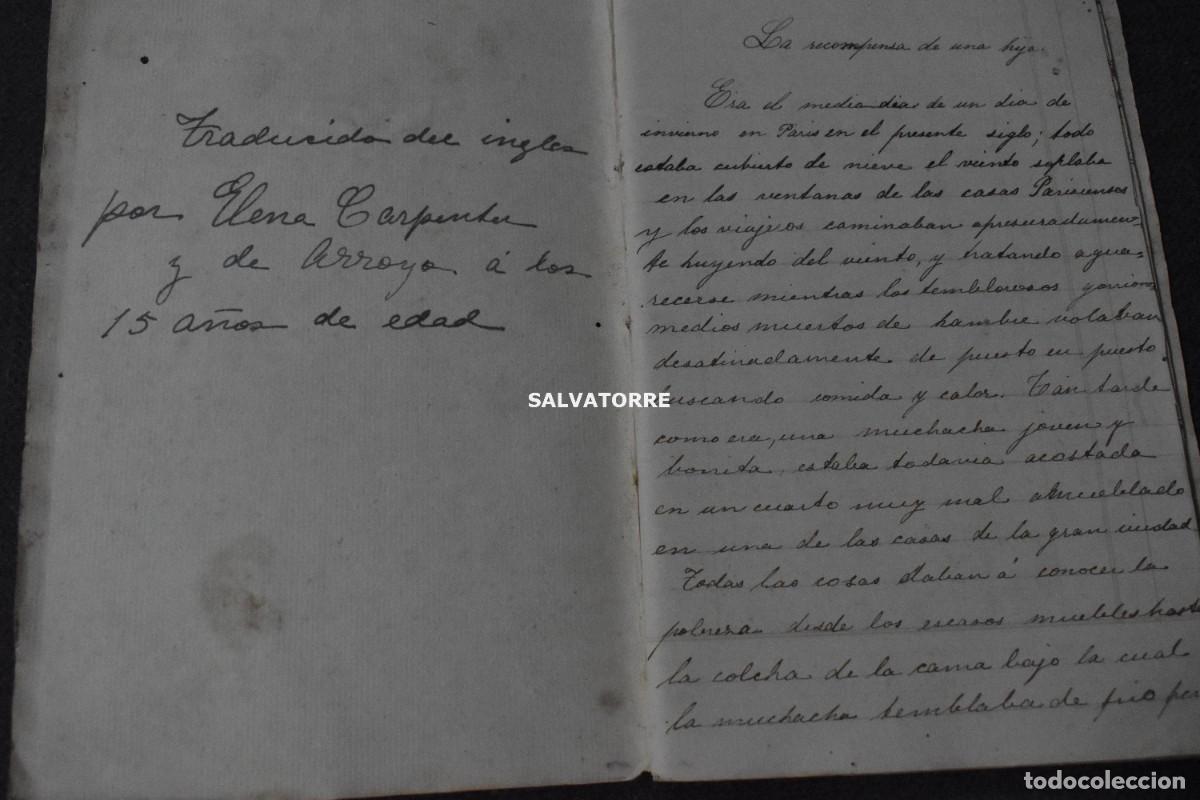 Traducido del ingles
por Elena Carpenter
y de Arroyo á los
15 años de edad
La recompensa de una hija.
Era el media dia de un dia de
invierno en Paris en el presente siglo; todo
estaba cubierto de nieve el viento soplaba
en las ventanas de las casas Parisienses
y los viajeros caminaban apresuradamen-
te huyendo del viento, y tratando a gua-
recerse mientras los temblorosos gorriones
medios muertos de hambre volaban
desatinadamente de puesto en puesto
buscando comida y calor. Tan tarde
como era, una muchacha joven y
bonita, estaba todavia acostada
en un cuarto muy mal amueblado
en una de las casas de la gran ciudad
Todas las cosas daban á conocer la
pobreza desde los escasos muebles hasta
la colcha de la cama bajo la cual
la muchacha temblaba de frio
SALVATORRE
todocoleccion